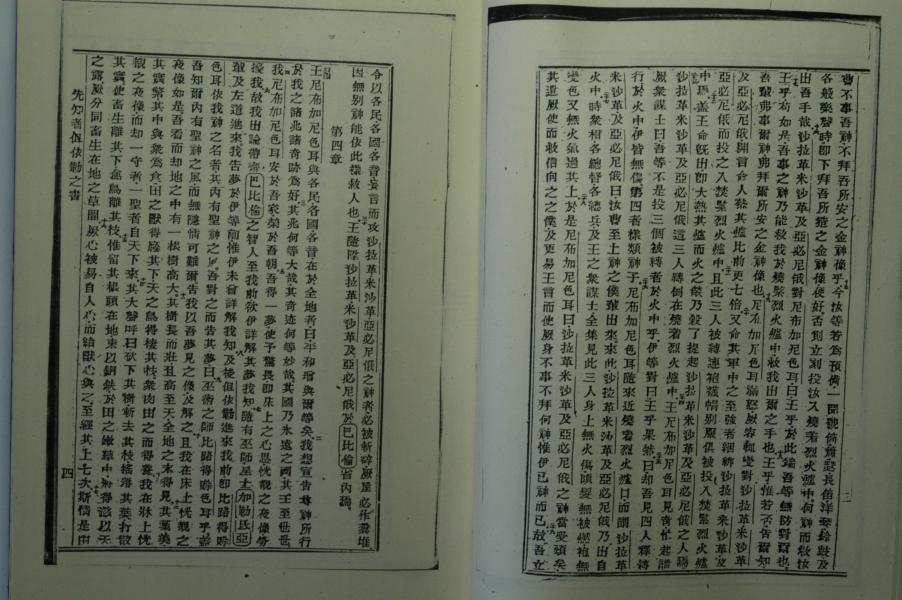 曹不事吾神不拜吾所安之金神像乎今汝等若為預備一聞長笛洋琴鼓及
各般樂聲時卽下拜吾所造之金神像便好否則立刻投汝入燒着烈火爐中何神而救汝
出吾手哉沙拉革米沙革及亞必尼俄對尼布加尼色耳曰王乎於此端吾等無妨對爾也
王乎如是吾事之神乃能救我於燒緊烈火爐中救我出爾之手也王乎惟若否告爾知
吾輩弗事爾神弗拜爾所安之金神像也尼布加尼色耳滿怒厥容輒變對沙拉革米沙革
及亞必尼俄開言命人緊其爐比前更七倍又命其軍中之至強者綑綁沙拉革米沙革及
亞必尼俄而投之入焚緊烈火爐中且此三人被縛連袍襪帽別服俱被投入焚緊烈火爐
中蓋王命旣出卽大熱其爐而火之燄乃殺了提起沙拉革米沙革及亞必尼俄之人
沙拉革米沙革及亞必尼俄這三人縛倒在燒着烈火爐中尼布加尼色耳見奇忙起謂
厥衆謀士曰吾等不是投三個被縛者於火中乎伊等對曰王乎果然曰却吾見四人釋縛
行於火中伊皆無傷第四者樣類神子尼布加尼色耳隨來近燒着烈火爐口而謂沙拉革
米沙革及亞必尼俄曰汝曹至上神之僕輩出來來此沙拉革米沙革及亞必尼俄乃出自
火中時衆相各總督各總兵及王之衆謀士全集見此三人身上無火傷頭髮無被燬袍無
變色又無火氣過其上於是尼布加尼色耳曰沙拉革米沙革及亞必尼俄之神當受頌矣
其遣厥使而救信向之之僕及更易王言而使厥身不事不拜何神惟伊已神而已故吾立
令以各民各國各音妄言而攻沙拉革米沙革亞必尼俄之神者必被斬碎厥屋必作糞堆
因無別神能依此樣救人也王隨陞沙拉革米沙革及亞必尼俄於巴比倫省內
第四章
王尼布加尼色耳與各民各國各音在於全地者曰平和增與爾等矣我想宣告尊神所行
於我之諸兆諸奇跡為好其兆何等大哉其奇迹何等妙哉其國乃永遠之國其王至世世
我尼布加尼色耳安於吾家榮於吾朝吾得一夢使予驚畏卽床上之心思恍視之夜像勞
擾我故我出諭帶齊巴比倫之智人至我前欲伊詳解其夢我知隨有巫師星士加勒氏亞
輩及左道進來我告夢於伊等前惟伊未曾詳解我知及後但依勒進來我前卽比路得時
色耳依我神之名者其內有聖神之風吾對之而告其夢曰巫術之師比路得時色耳乎因
吾知爾內有聖神之風而無隱情可難爾告我以吾夢見之像及解之且我在床上恍視之
夜像如是吾看而却地之中有一樹高大其樹長而壯且高至天全地之末得見其葉美
其實繁其中與衆為食田之獸得廕其下天之鳥得棲其枝衆肉由之而得養我在牀上恍
視之夜像而却一守者一聖者自天下來其大聲呼曰砍下其樹斬去其枝搖落其葉打散
其實使畜生離其下禽鳥離其枝惟留其根頭在地束以銅鉄於田之嫩草中得濕以天
之露厥分同畜生在地之草間厥心被易自人心而給獸心與之至經其上七次斯情是由
先知者但依勒之書
四